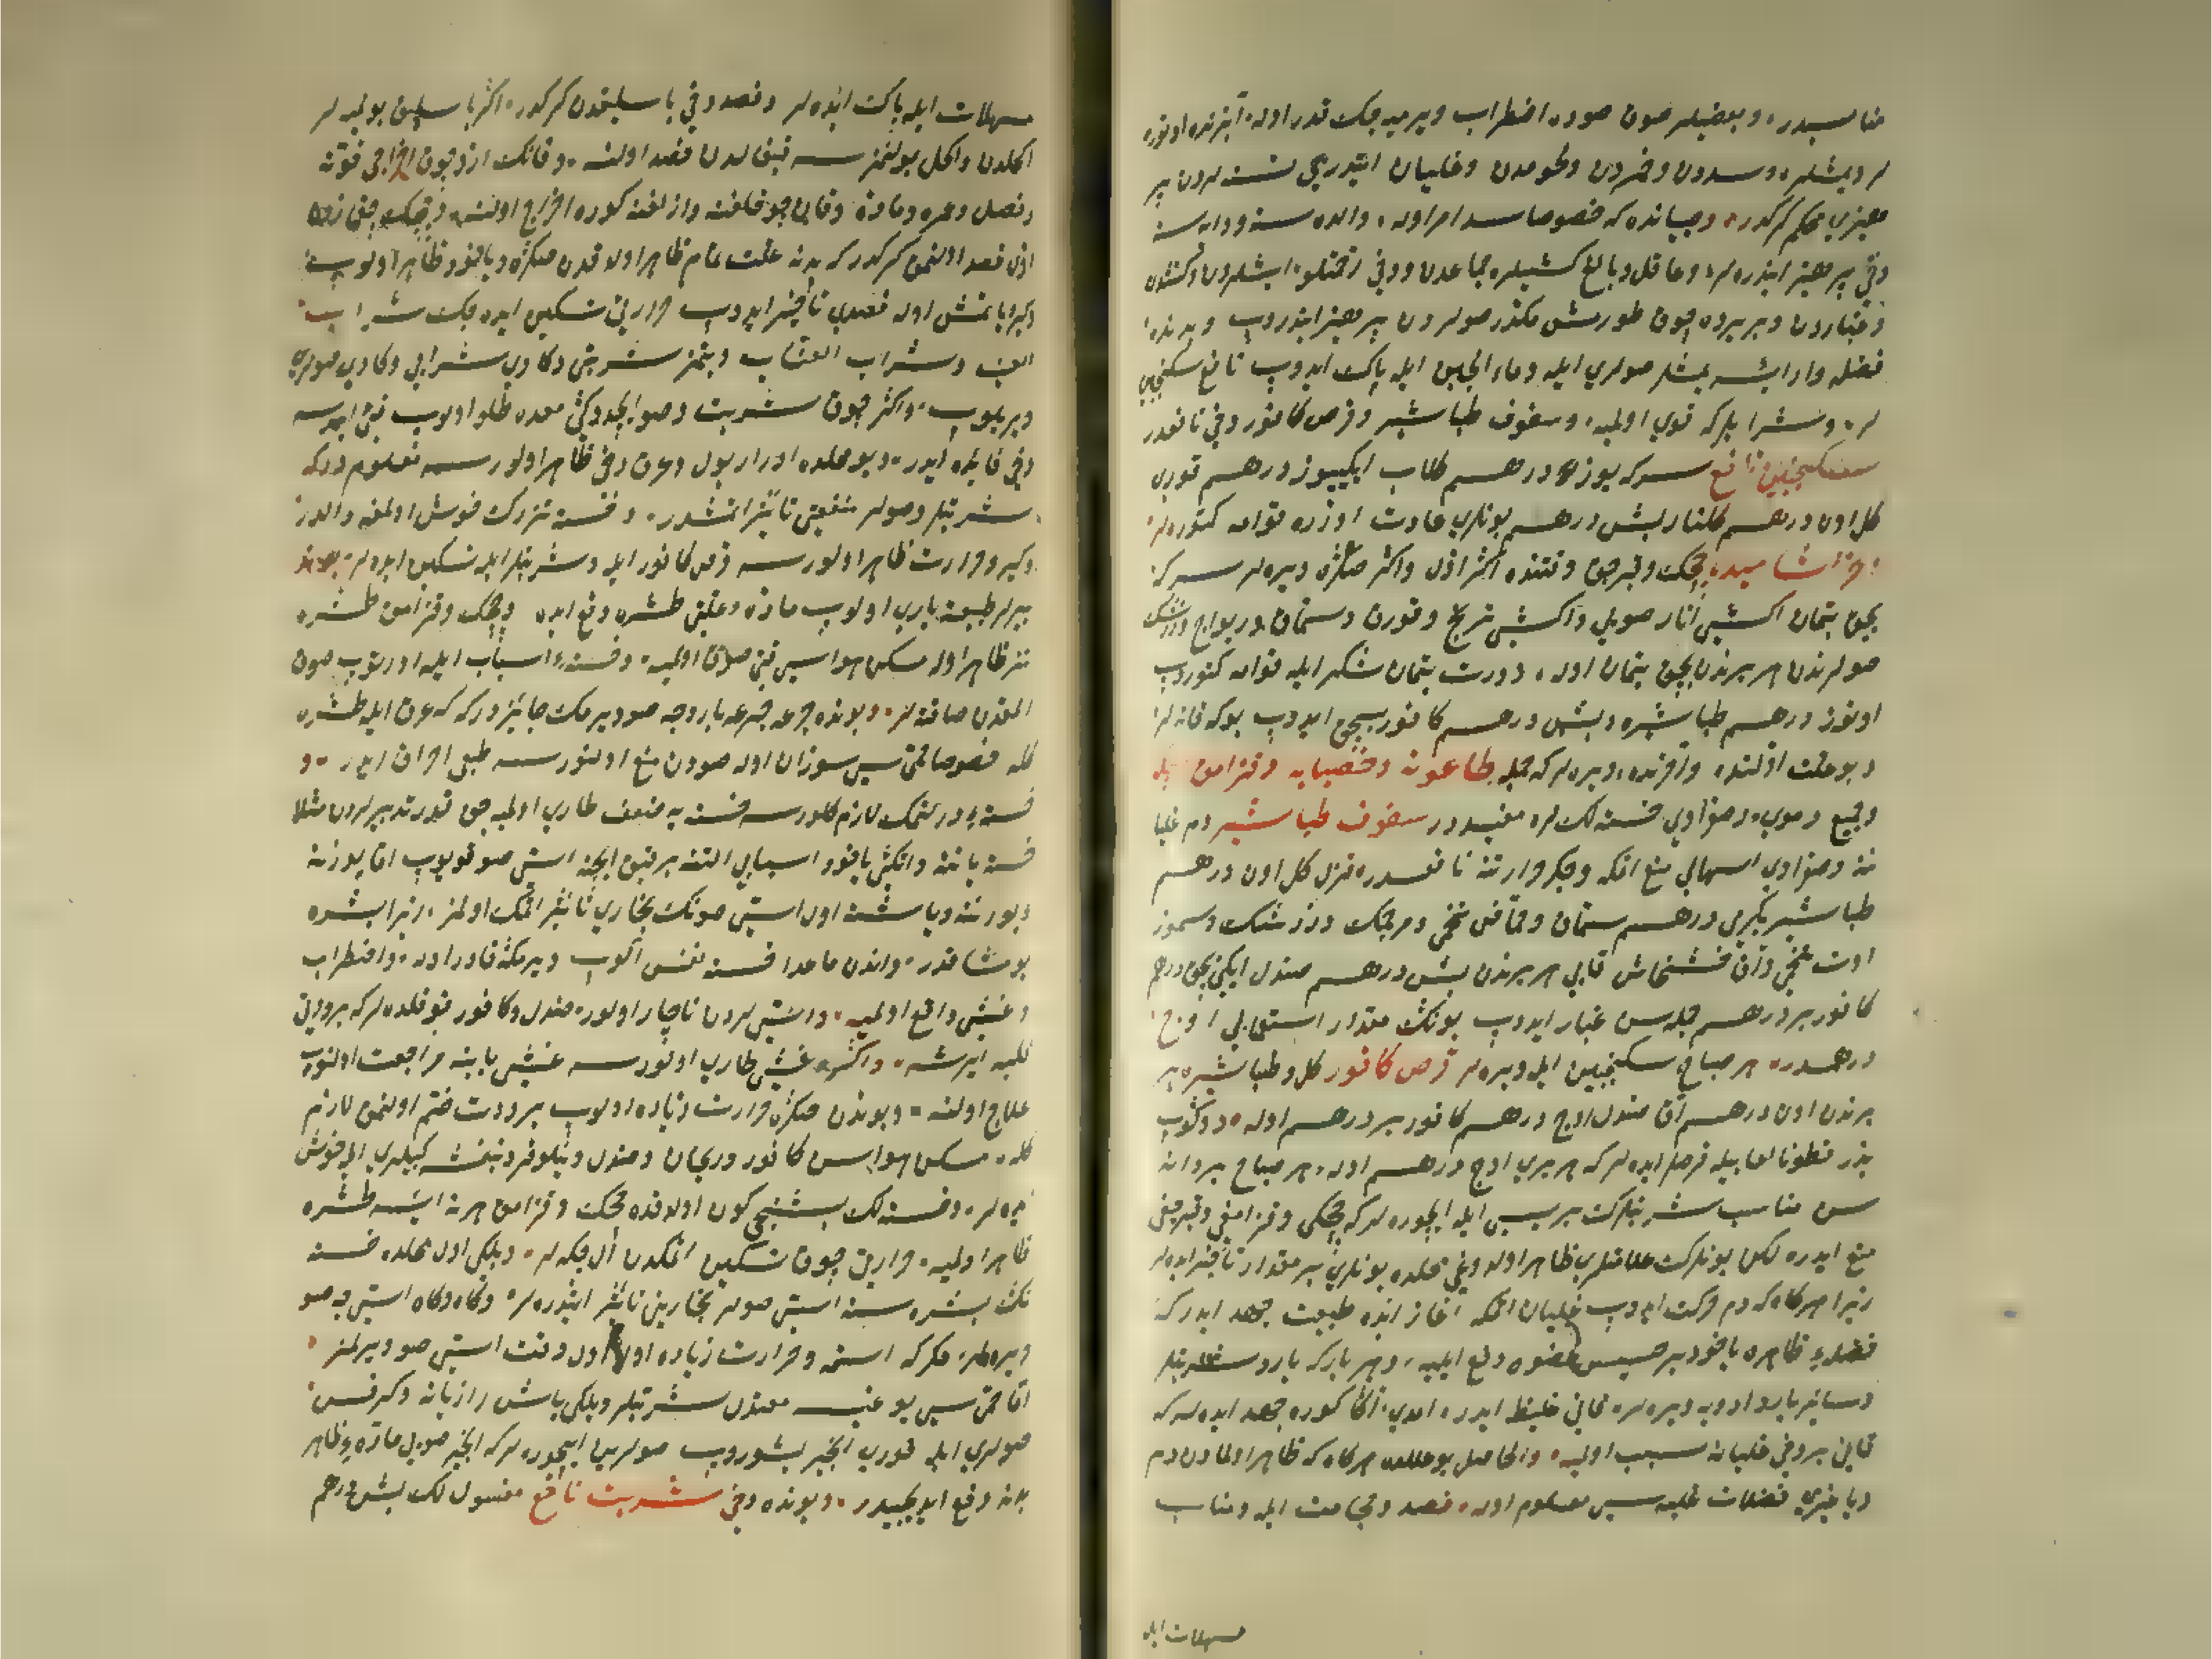 مناسبدر و بعضیلر صون صوده اضطراب ویرمیه جک قدر اوله آبزنده اوتوره
لر دیمشلر و سددن و خمردن ولحومدن و غلیان ایتدریجی نسنه لردن پر
هیزی محکم کرکدر و صبیانده که خصوصا سدامر اوله والده سنه و دایه سنه
دخی پرهیز ایتدره لر و عاقل و بالغ کشیلره جماعدن و دخی زحمتلو ایشلردن
و غباردن و بر یرده چوق طورمش مکدر صولردن پرهیز ایتدروب و بدنده
فضله وار ایسه یمشلر صولری ایله و ماء الجبن ایله پاک ایدوب نافع سکنجبین
لر و شرابلر که قوی اولمیه و سفوف طباشیر و قرص کافور دخی نافعدر
سکنجبین نافع سرکه یوز درهم کلاب ایکیوز درهم قوری
کل اون درهم کلنار بش درهم بونلری عادت اوزره قوامه کتوره لر
بچق بتمان اکشی انار صویی و اکشی ترنج و قورق و سماق و ریواج و زرشک
صولرندن هر برندن بچق بتمان اوله دورت بتمان شکر ایله قوامه کتوروب
اوتوز درهم طباشیره و بش درهم کافور سحق ایدوب بوکه قاته لر
و بو علت اولنده و آخرنده ویره لر که جمله طاعونه و حصبایه و قزامق
و جمیع دموی و صفراوی خسته لکلره مفیددر سفوف طباشیر دم غلیا
ننه و صفراوی اسهالی منع اتمکه و جکر حرارتنه نافعدر قزل کل اون درهم
طباشیر یکرمی درهم سماق و حماض تخمی و مرجمک و زرشک و سموز
اوت تخمی و آق خشخاش قابی هر برندن بش درهم صندل ایکی بچق درهم
کافور بر درهم جمله سن غبار ایدوب بونک مقدار استعمالی اوچ
درهمدر هر صباح سکنجبین ایله ویره لر قرص کافور کل و طباشیر هر
برندن اون درهم آق صندل اوچ درهم کافور بر درهم اوله دوکوب
بذر قطونا لعابیله قرصلر ایده لر که هر بری اوچ درهم اوله هر صباح بر دانه
سن مناسب شربتلرک بریسی ایله ایچوره لر که چچکی و قزامغی
منع ایدره لکن بونلرک علامتلری ظاهر اولدوغی محلده بونلری بر مقدار تأخیر ایده لر
زیرا هرکاه که دم حرکت ایدوب غلیان اتمکه آغاز ایده طبیعت جهد ایدر که
فضله یی ظاهره یاخود بر خسیس عضوه دفع ایلیه و هر بار که بارد شربتلر
و سائر بارد ادویه ویره لر قانی غلیظ ایدر ایمدی اکا کوره جهد ایده لر که
قانی بر دخی غلیانه سبب اولمیه والحاصل بو علتده هرکاه که ظاهر اولمادن دم
و یا غیری فضلات غلبه سی معلوم اوله فصد و حجامت ایله و مناسب
مسهلات ایله
مسهلات ایله پاک ایده لر و فصد دخی باسلیقدن کرکدر اکثر باسلیق بولنیه لر
اکحلدن و اکحل بولنمز سه قیفالدن فصد اولنه و قانک آز و چوق اخراجی قوته
و فصل و عمره و ماده و قانی چوقلغنه و آزلغنه کوره اخراج اولنه
اول فصد اولنمق کرکدر که بدنه علت تمام ظاهر اولمقدن صکره و یاخود ظاهر اولوب
یاتمش اوله فصدی تأخیر ایدوب حرارتی تسکین ایده جک شراب
العنب و شراب العناب و شربتی و کادی شرابی و کادی صولری
ویریلوب و اکثر چوق شربت و صو ایچدوکی معده طلو اولوب قی ایدرسه
دخی فایده ایدر و بو محلده ادرار بول و عرق دخی ظاهر اولورسه معلوم در که
شربتلر و صولر منفعتی تأثیر اتمشدر و خسته تزرک خوش اولمغه
و حرارت ظاهر اولورسه قرص کافور ایله و شربتلر ایله تسکین ایده لر
ویرلر طبیعته یاری اولوب ماده و علتی طشره دفع ایده و چچک و قزامق طشره
تیز ظاهر اوله مسکن هواسی قتی صوق اولمیه و خسته اسباب ایله اورتوب صوق
المقدن صاقنه لر و بونده جرعه جرعه بارد صو ویرمک جایز در که عرق ایله طشره
کله خصوصا حمی سی سوزان اوله صودن منع اولنورسه طبعی احراق ایدر و
خسته یی درلتمک لازم کلورسه خسته یه ضعف طاری اولمیه جق قدر تدبیرلردن مثلا
خسته یاننه و اتکی یاخود اسبابی التنه بر قبق ایچنه استی صو قویوب اکا یوزنه
و بورننه و یا شنه اول استی صونک بخاری تأثیر اتمک اولمز زیرا بشره
یومشادر و اندن ماعدا خسته نفس آلوب ویرمکه قادر اوله و اضطراب
و غشی واقع اولمیه و استی لردن ناچار اولور صندل و کافور قوقلده لر که برودتی
قلبه ایرشه و اکثر غشی طاری اولورسه غشی بابنه مراجعت اولنوب
علاج اولنه و بوندن صکره حرارت زیاده اولوب برودت ختم اولنمق لازم
کله مسکن هواسن کافور و ریحان و صندل و نیلوفر و بنفشه کبیلری ایله خوش
ایده لر و خسته لک بشنجی کون اولدقده چچک و قزامق هر نه ایسه طشره
ظاهر اولمیه حرارتی چوق تسکین اتمکدن ال چکه لر و بلکی اول محلده خسته
نک بشره سنه استی صولر بخارینی تأثیر ایتدره لر و کاه و کاه استی جه صو
ویره لر مکر که استه و حرارت زیاده اوله اول وقت استی صو ویرلمز
اما حمی سی یوغیسه معتدل شربتلر و بلکی یاش رازیانه و کرفس
صولری ایله قوری انجیر پشوروب صولرین ایچوره لر که انجیر صویی ماده یی ظاهر
بدنه دفع ایدیجیدر و بونده دخی شربت نافع مغسول لک بش درهم